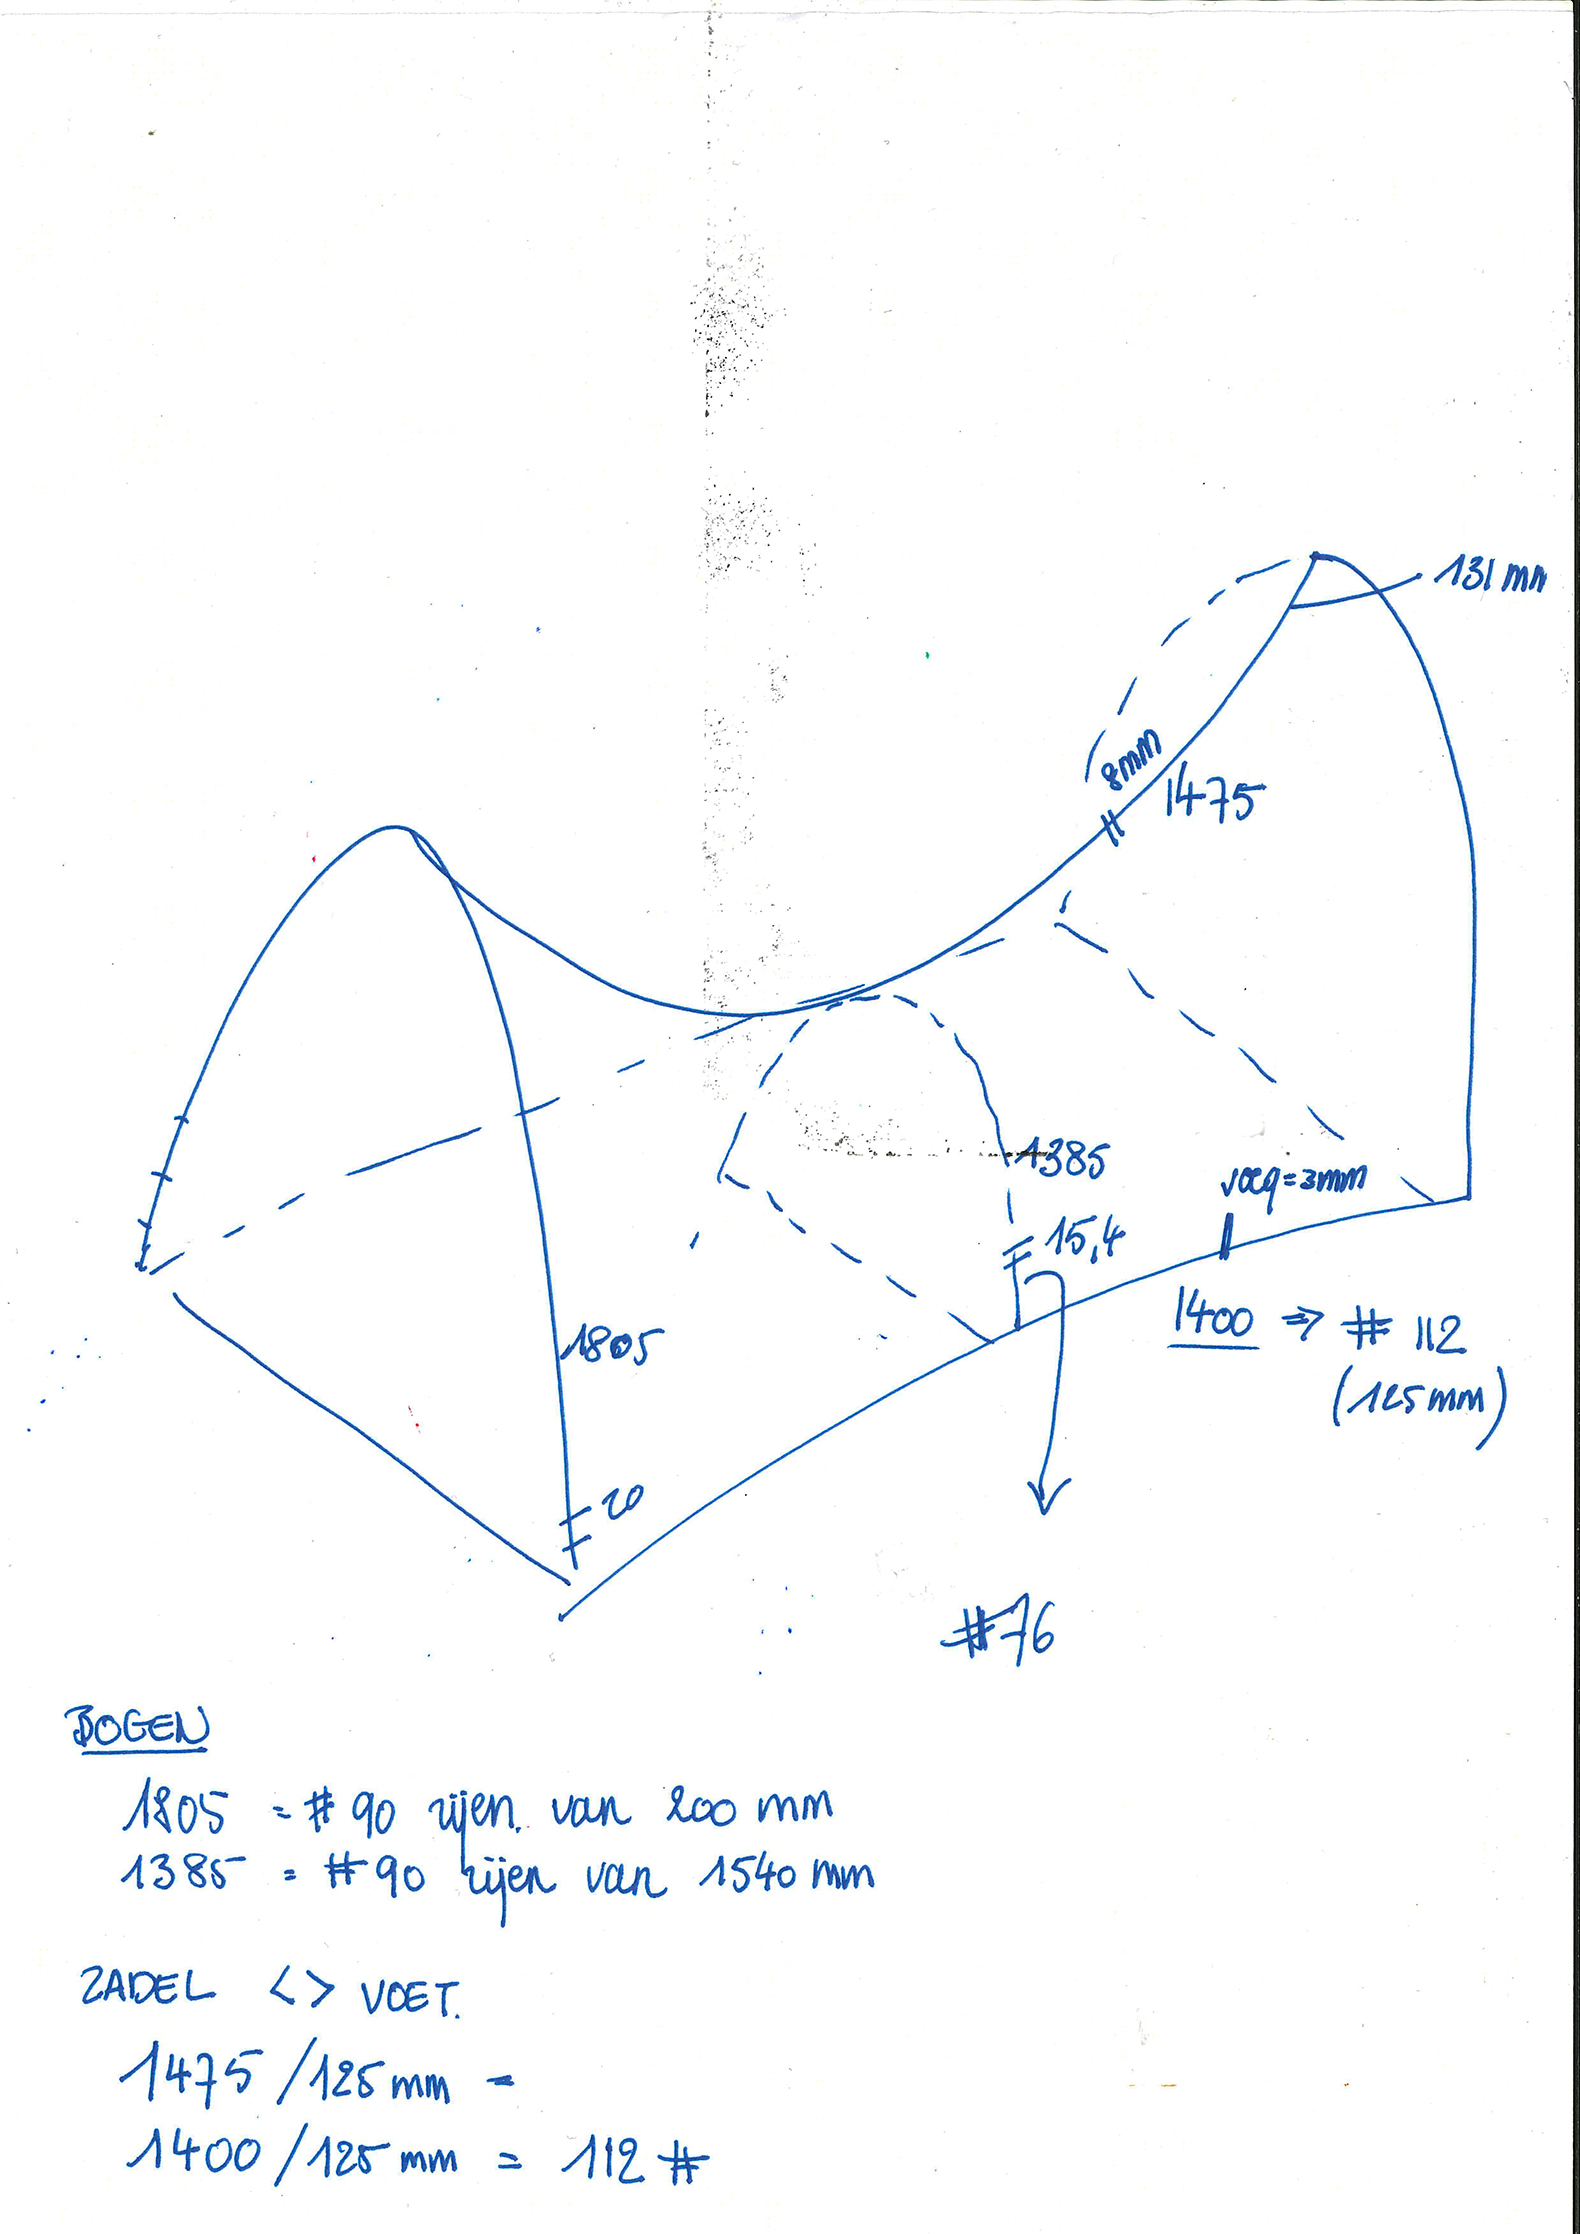 131 mm
8mm
1475
1385
voeg = 3mm
15,4
1400 ⇒ # 112
(125mm)
1805
20
#76
BOGEN
1805 = # 90 rijen. van 200 mm
1385 = # 90 rijen van 1540 mm
ZADEL <> VOET.
1475 / 125 mm =
1400 / 125 mm = 112 #